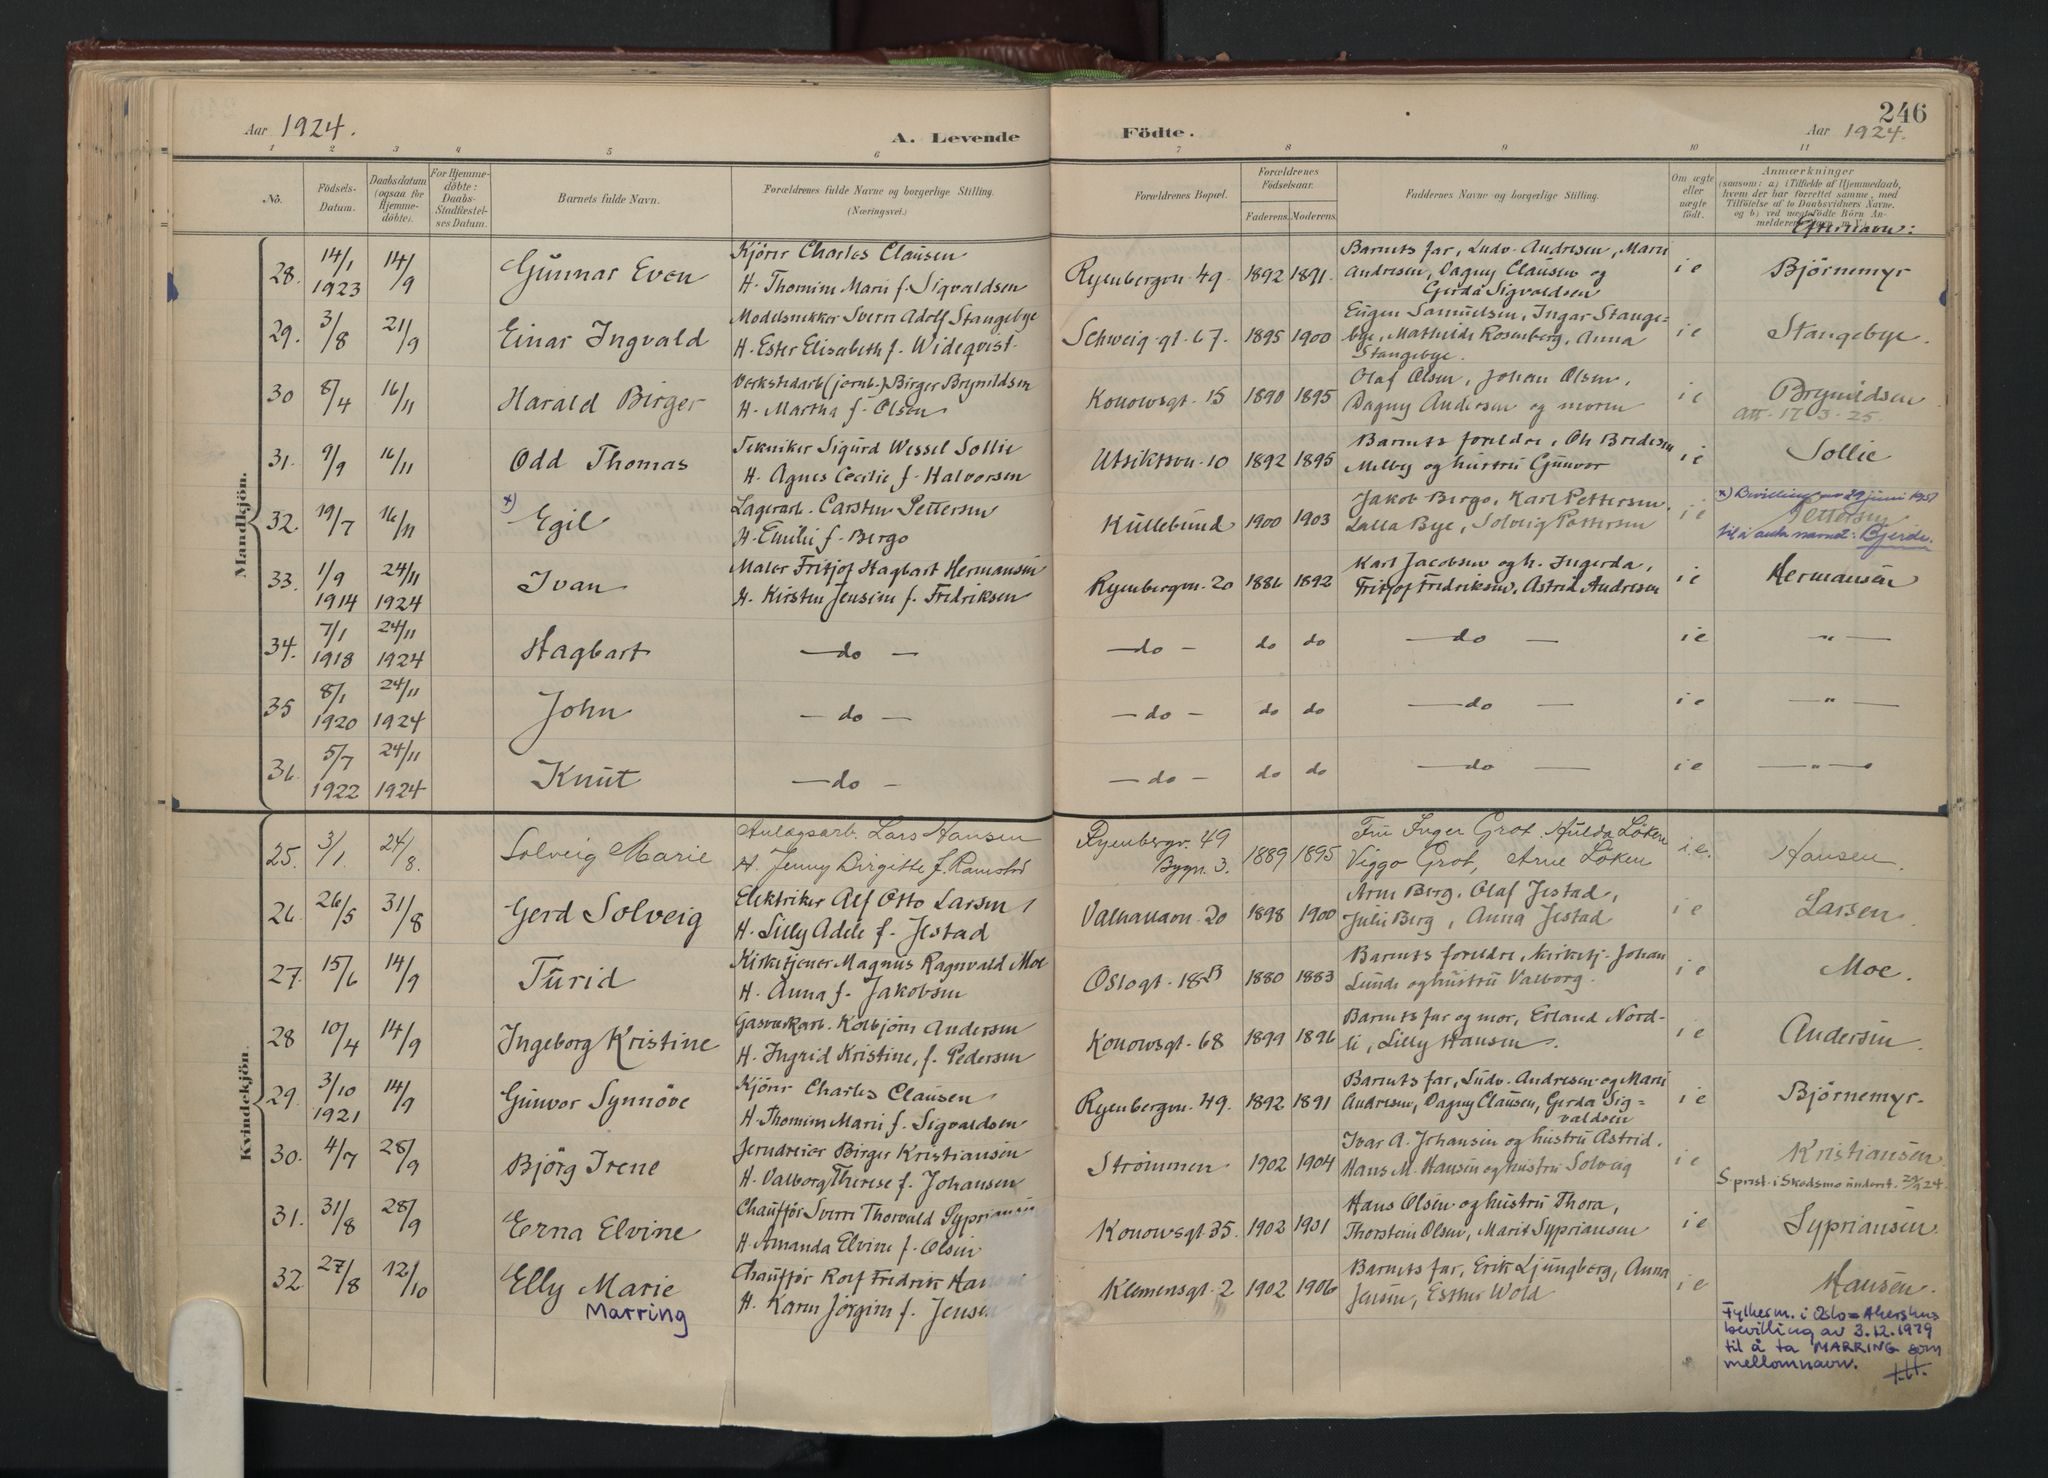 246
Aar 1924.
A. Levende Födte.
Aar 1924.
1 2 3 4 5 6 7 8 9 10 11
No.
Födsels-Datum.
Daabsdatum (ogsaa for Hjemme-döbte).
For Hjemme-döbte: Daabs-Stadfæstel-ses Datum.
Barnets fulde Navn.
Forældrenes fulde Navne og borgerlige Stilling. (Næringsvei.)
Forældrenes Bopæl.
Forældrenes Födselsaar.
Faderens. Moderens.
Faddernes Navne og borgerlige Stilling.
Om ægte eller uægte födt.
Anmærkninger
(saasom: a) i Tilfælde af Hjemmedaab, hvem der har forrettet samme, med Tilföielse af to Daabsvidners Navne. og b) ved uægtefödte Börn An-
Efternavn:
Mandkjön.
28. 14/1 1923 14/9 Gunnar Even
Kjörer Charles Clausen
H. Thomine Marie f. Sigvaldsen
Ryenbergvn. 49. 1892 1891.
Barnets far, Ludv. Andresen, Marie
Andresen, Dagny Clausen og
Gerda Sigvaldsen
i e Björnemyr
29. 3/8 21/9 Einar Ingvald
Modelsnekker Sverre Adolf Stangebye
H. Ester Elisabeth f. Wideqvist.
Schweig.gt. 67. 1895 1900
Eugen Samuelsen, Ingar Stange-
bye, Mathilde Rosenberg, Anna
Stangebye.
i e Stangebye.
30 8/4 16/11 Harald Birger
Verkstedarb (jernb.) Birger Brynildsen
H. Martha f. Olsen
Konowsgt. 15 1890 1895
Olaf Olsen, Johan Olsen,
Dagny Andersen og moren
i e Brynildsen
Att. 17-3-25.
31. 9/9 16/11 Odd Thomas
Tekniker Sigurd Wessel Sollie
H. Agnes Cecilie f. Halvorsen
Utsiktsvn. 10 1892 1895
Barnets foreldre, Oh. Bredesen
Melby og hustru Gunvor
i e Sollie
32. 19/7 16/11 x) Egil
Lagerarb. Carsten Pettersen
H. Emilie f. Bergo
Kullebund 1900 1903
Jakob Bergo, Karl Pettersen,
Lalla Bye, Solveig Pettersen
i e x) Bevilling av 29 juni 1951
Pettersen
til å anta navnet: Bjerde.
33. 1/9 1914 24/11 1924 Ivan
Maler Fritjof Hagbart Hermansen
H. Kirsten Jensine f. Fredriksen
Ryenbergvn. 20 1886 1892
Karl Jacobsen og h. Ingerda,
Fritjof Fredriksen, Astrid Andresen
i e Hermansen
34. 7/1 1918 24/11 1924 Hagbart
— do — — do — do do — do — i e — " —
35 8/1 1920 24/11 1924 John
— do — — do — do do — do — i e — " —
36. 5/7 1922 24/11 1924 Knut
— do — — do — do do — do — i e — " —
Kvindekjön.
25. 3/1. 24/8. Solveig Marie
Anlægsarb. Lars Hansen
H. Jenny Birgitte f. Ramstad
Ryenbergv. 49
Bygn. 3. 1889 1895
Fru Inger Grot, Hulda Löken
Viggo Grot, Arne Löken
i.e. Hansen.
26. 26/5 31/8 Gerd Solveig
Elektriker Alf Otto Larsen
H. Lilly Adele f. Jestad
Valhallavn. 20 1898 1900
Arne Berg, Olaf Jestad,
Juli Berg, Anna Jestad
i e Larsen.
27. 15/6 14/9 Turid
Kirketjener Magnus Ragnvald Moe
H. Anna f. Jakobsen
Oslogt. 18B 1880 1883
Barnets foreldre, kirketj. Johan
Lunde og hustru Valborg.
i e Moe.
28 10/4 14/9 Ingeborg Kristine
Gasverkarb. Kolbjörn Andersen
H. Ingrid Kristine, f. Pedersen
Konowsgt. 68 1899 1896
Barnets far og mor, Erland Nord-
li, Lilly Hansen.
i e Andersen.
29. 3/10 1921 14/9 Gunvor Synnöve
Kjörer Charles Clausen
H. Thomine Marie f. Sigvaldsen
Ryenbergvn. 49. 1892 1891
Barnets far, Ludv. Andresen og Marie
Andresen, Dagny Clausen, Gerda Sig-
valdsen
i e Björnemyr.
30. 4/7 28/9 Björg Irene
Jerndreier Birger Kristiansen
H. Valborg Therese f. Johansen
Strömmen 1902 1904
Ivar A. Johansen og hustru Astrid.
Hans M. Hansen og hustru Solveig
i e Kristiansen
S.prest i Skedsmo underet. 29/9 24.
31. 31/8 28/9 Erna Elvine
Chauffør Sverre Thorvald Sypriansen
H. Amanda Elvine f. Olsen
Konowsgt. 35. 1902 1901
Hans Olsen og hustru Thora,
Thorstein Olsen, Marit Sypriansen
i e Sypriansen
32 27/8 12/10 Elly Marie
Marring
Chauffør Rolf Fredrik Hansen
H. Karen Jörgine f. Jensen
Klemensgt. 2 1902 1906
Barnets far, Erik Ljungberg, Anna
Jensen, Esther Wold
i e Hansen.
Fylkesm. i Oslo=Akershus
bevilling av 3.12.1929
til å ta MARRING som
mellomnavn.